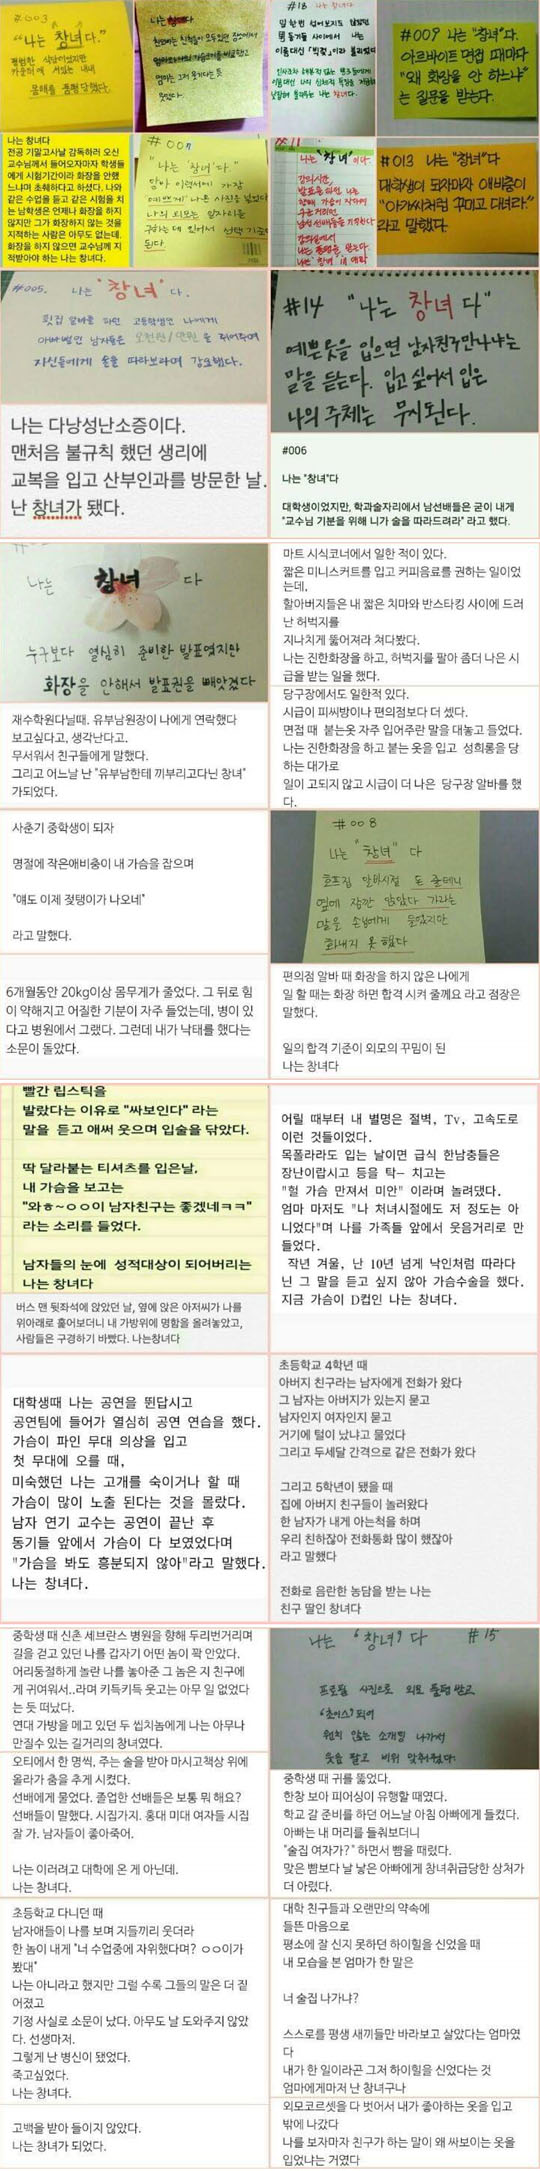 #003
"나는 창녀다."
평범한 식당이었지만
카운터에 서있는 내내
몸매를 품평 당했다.
나는 창녀다
#18 나는 창녀다
#009 나는 "창녀"다.
아르바이트 면접 때마다
"왜 화장을 안 하느냐"
는 질문을 받는다.
나는 창녀다
전공 기말고사날 감독하러 오신
교수님께서 들어오자마자 학생들
에게 시험기간이라 화장을 안했
느냐며 초췌하다고 하셨다. 나와
같은 수업을 듣고 같은 시험을 치
는 남학생은 언제나 화장을 하지
않지만 그가 화장하지 않는 것을
지적하는 사람은 아무도 없는데.
화장을 하지 않으면 교수님께 지
적받아야 하는 나는 창녀다.
# 007
"나는 '창녀'다."
알바 이력서에 가장
예쁘게 나온 사진을 넣었다
나의 외모는 일자리를
구하는 데 있어서 선택 기준이
된다
나는 "창녀"이다.
강의시간,
발표를 하면 나는
#013 나는 "창녀"다
대학생이 되자마자 애비충이
"아가씨처럼 꾸미고 다녀라."
라고 말했다.
#005. 나는 "창녀"다.
횟집 알바를 하던 고등학생인 나에게
아빠뻘인 남자들은 오천원/만원을 쥐어주며
자신들에게 술을 따라보라며 강요했다.
#14 "나는 창녀다"
예쁜옷을 입으면 남자친구만나냐는
말을 듣는다. 입고 싶어서 입은
나의 주체는 무시된다.
나는 다낭성난소증이다.
맨처음 불규칙 했던 생리에
교복을 입고 산부인과를 방문한 날.
난 창녀가 됐다.
#006
나는 "창녀"다
대학생이었지만, 학과술자리에서 남선배들은 굳이 내게
"교수님 기분을 위해 니가 술을 따라드려라" 라고 했다.
나는 창녀 다
누구보다 열심히 준비한 발표였지만
화장을 안해서 발표권을 빼앗겼다
마트 시식코너에서 일한 적이 있다.
짧은 미니스커트를 입고 커피음료를 권하는 일이었
는데,
할아버지들은 내 짧은 치마와 반스타킹 사이에 드러
난 허벅지를
지나치게 뚫어져라 쳐다봤다.
나는 진한화장을 하고, 허벅지를 팔아 좀더 나은 시
급을 받는 일을 했다.
재수학원다닐때. 유부남원장이 나에게 연락했다
보고싶다고, 생각난다고.
무서워서 친구들에게 말했다.
그리고 어느날 난 "유부남한테 끼부리고다닌 창녀"
가되었다.
당구장에서도 일한적 있다.
시급이 피씨방이나 편의점보다 더 셌다.
면접 때 붙는옷 자주 입어주란 말을 대놓고 들었다.
나는 진한화장을 하고 붙는 옷을 입고 성희롱을 당
하는 대가로
일이 고되지 않고 시급이 더 나은 당구장 알바를 했
다.
사춘기 중학생이 되자
명절에 작은애비충이 내 가슴을 잡으며
"얘도 이제 젖탱이가 나오네"
라고 말했다.
#008
나는 "창녀" 다
호프집 알바시절 돈 줄테니
옆에 잠깐 앉았다 가라는
말을 손님에게 들었지만
화내지 못 했다
6개월동안 20kg이상 몸무게가 줄었다. 그 뒤로 힘
이 약해지고 어질한 기분이 자주 들었는데, 병이 있
다고 병원에서 그랬다. 그런데 내가 낙태를 했다는
소문이 돌았다.
편의점 알바 때 화장을 하지 않은 나에게
일 할 때는 화장 하면 합격 시켜 줄께요 라고 점장은
말했다.
일의 합격 기준이 외모의 꾸밈이 된
나는 창녀다
빨간 립스틱을
발랐다는 이유로 "싸보인다" 라는
말을 듣고 애써 웃으며 입술을 닦았다.
딱 달라붙는 티셔츠를 입은날,
내 가슴을 보고는
"와ㅎ~ㅇㅇ이 남자친구는 좋겠네ㅋㅋ"
라는 소리를 들었다.
남자들의 눈에 성적대상이 되어버리는
나는 창녀다
버스 맨 뒷좌석에 앉았던 날, 옆에 앉은 아저씨가 나를
위아래로 훑어보더니 내 가방위에 명함을 올려놓았고,
사람들은 구경하기 바빴다. 나는창녀다
어릴 때부터 내 별명은 절벽, Tv, 고속도로
이런 것들이었다.
목폴라라도 입는 날이면 급식 한남충들은
장난이랍시고 등을 탁― 치고는
"헐 가슴 만져서 미안" 이라며 놀려댔다.
엄마 마저도 "나 처녀시절에도 저 정도는 아
니었다"며 나를 가족들 앞에서 웃음거리로 만
들었다.
작년 겨울, 난 10년 넘게 낙인처럼 따라다
닌 그 말을 듣고 싶지 않아 가슴수술을 했다.
지금 가슴이 D컵인 나는 창녀다.
대학생때 나는 공연을 뛴답시고
공연팀에 들어가 열심히 공연 연습을 했다.
가슴이 파인 무대 의상을 입고
첫 무대에 오를 때,
미숙했던 나는 고개를 숙이거나 할 때
가슴이 많이 노출 된다는 것을 몰랐다.
남자 연기 교수는 공연이 끝난 후
동기들 앞에서 가슴이 다 보였었다며
"가슴을 봐도 흥분되지 않아"라고 말했다.
나는 창녀다.
초등학교 4학년 때
아버지 친구라는 남자에게 전화가 왔다
그 남자는 아버지가 있는지 묻고
남자인지 여자인지 묻고
거기에 털이 났냐고 물었다
그리고 두세달 간격으로 같은 전화가 왔다
그리고 5학년이 됐을 때
집에 아버지 친구들이 놀러왔다
한 남자가 내게 아는척을 하며
우리 친하잖아 전화통화 많이 했잖아
라고 말했다
전화로 음란한 농담을 받는 나는
친구 딸인 창녀다
중학생 때 신촌 세브란스 병원을 향해 두리번거리며
길을 걷고 있던 나를 갑자기 어떤 놈이 꽉 안았다.
어리둥절하게 놀란 나를 놓아준 그 놈은 지 친구에
게 귀여워서..라며 키득키득 웃고는 아무 일 없었다
는 듯 떠났다.
연대 가방을 메고 있던 두 씹치놈에게 나는 아무나
만질수 있는 길거리의 창녀였다.
나는 "창녀"다 #15
프로필 사진으로 외모 품평 받고
'초이스' 되어
원치 않는 소개팅 나가서
웃음 팔고 비위 맞춰줬다.
오티에서 한 명씩, 주는 술을 받아 마시고책상 위에
올라가 춤을 추게 시켰다.
선배에게 물었다. 졸업한 선배들은 보통 뭐 해요?
선배들이 말했다. 시집가지. 홍대 미대 여자들 시집
잘 가. 남자들이 좋아죽어.
나는 이러려고 대학에 온 게 아닌데.
나는 창녀다.
중학생 때 귀를 뚫었다.
한창 보아 피어싱이 유행할 때였다.
학교 갈 준비를 하던 어느날 아침 아빠에게 들켰다.
아빠는 내 머리를 들춰보더니
"술집 여자가?" 하면서 뺨을 때렸다.
맞은 뺨보다 날 낳은 아빠에게 창녀취급당한 상처가
더 아렸다.
초등학교 다니던 때
남자애들이 나를 보며 지들끼리 웃더라
한 놈이 내게 "너 수업중에 자위했다며? ㅇㅇ이가
봤대"
나는 아니라고 했지만 그럴 수록 그들의 말은 더 짙
어졌고
기정 사실로 소문이 났다. 아무도 날 도와주지 않았
다. 선생마저.
그렇게 난 병신이 됐었다.
죽고싶었다.
나는 창녀다.
대학 친구들과 오랜만의 약속에
들뜬 마음으로
평소에 잘 신지 못하던 하이힐을 신었을 때
내 모습을 본 엄마가 한 말은
너 술집 나가냐?
스스로를 평생 새끼들만 바라보고 살았다는 엄마였
다
내가 한 일이라곤 그저 하이힐을 신었다는 것
엄마에게마저 난 창녀구나
고백을 받아 들이지 않았다.
나는 창녀가 되었다.
외모코르셋을 다 벗어서 내가 좋아하는 옷을 입고
밖에 나갔다
나를 보자마자 친구가 하는 말이 왜 싸보이는 옷을
입었냐는 거였다